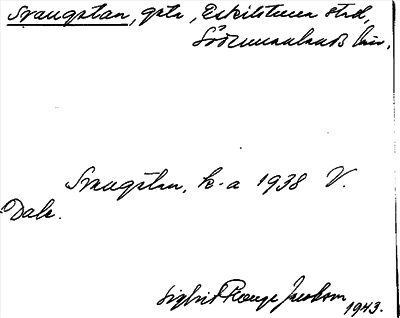 Svangatan, gata, Eskilstuna stad,
Södermanlands län.
Svangatan, k-a 1938 V.
Dala.
Sigrid Range Jacobson
1943.